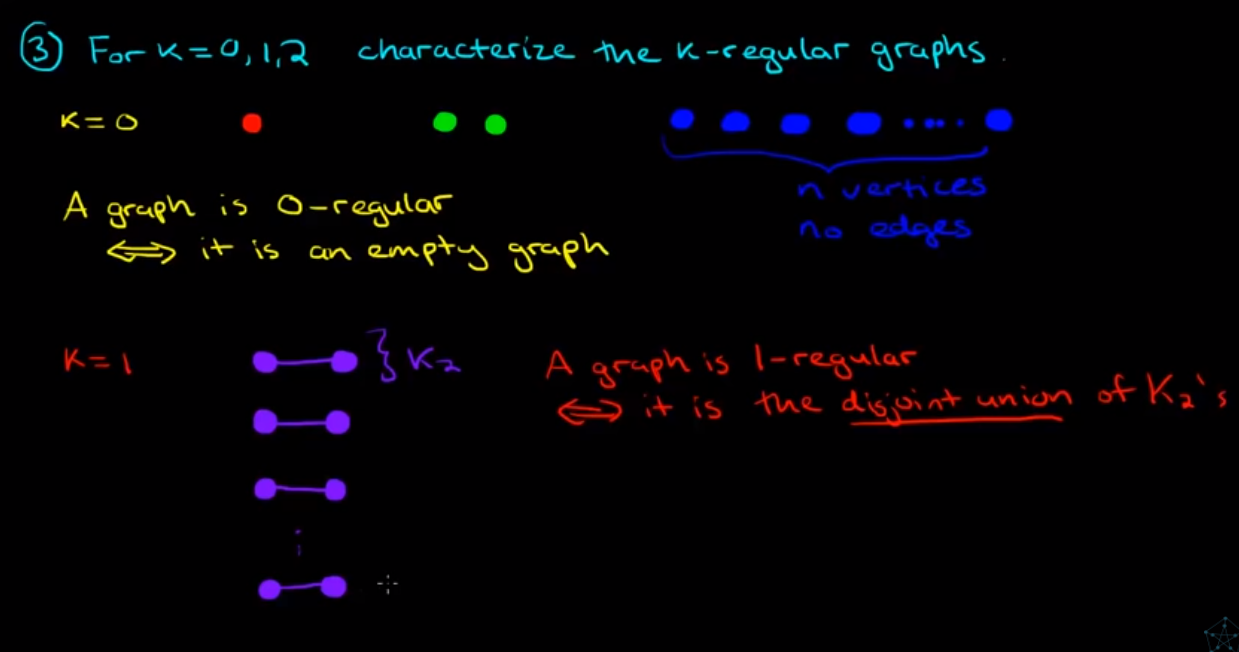 ③ For K=0,1,2 characterize the K-regular graphs.
K=0
n vertices
no edges
A graph is 0-regular
⟺ it is an empty graph
K=1
} K₂
A graph is 1-regular
⟺ it is the disjoint union of K₂'s